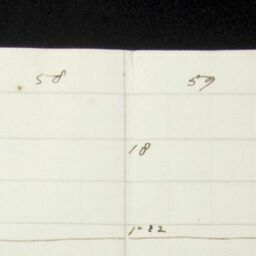 58 59
18
1-82